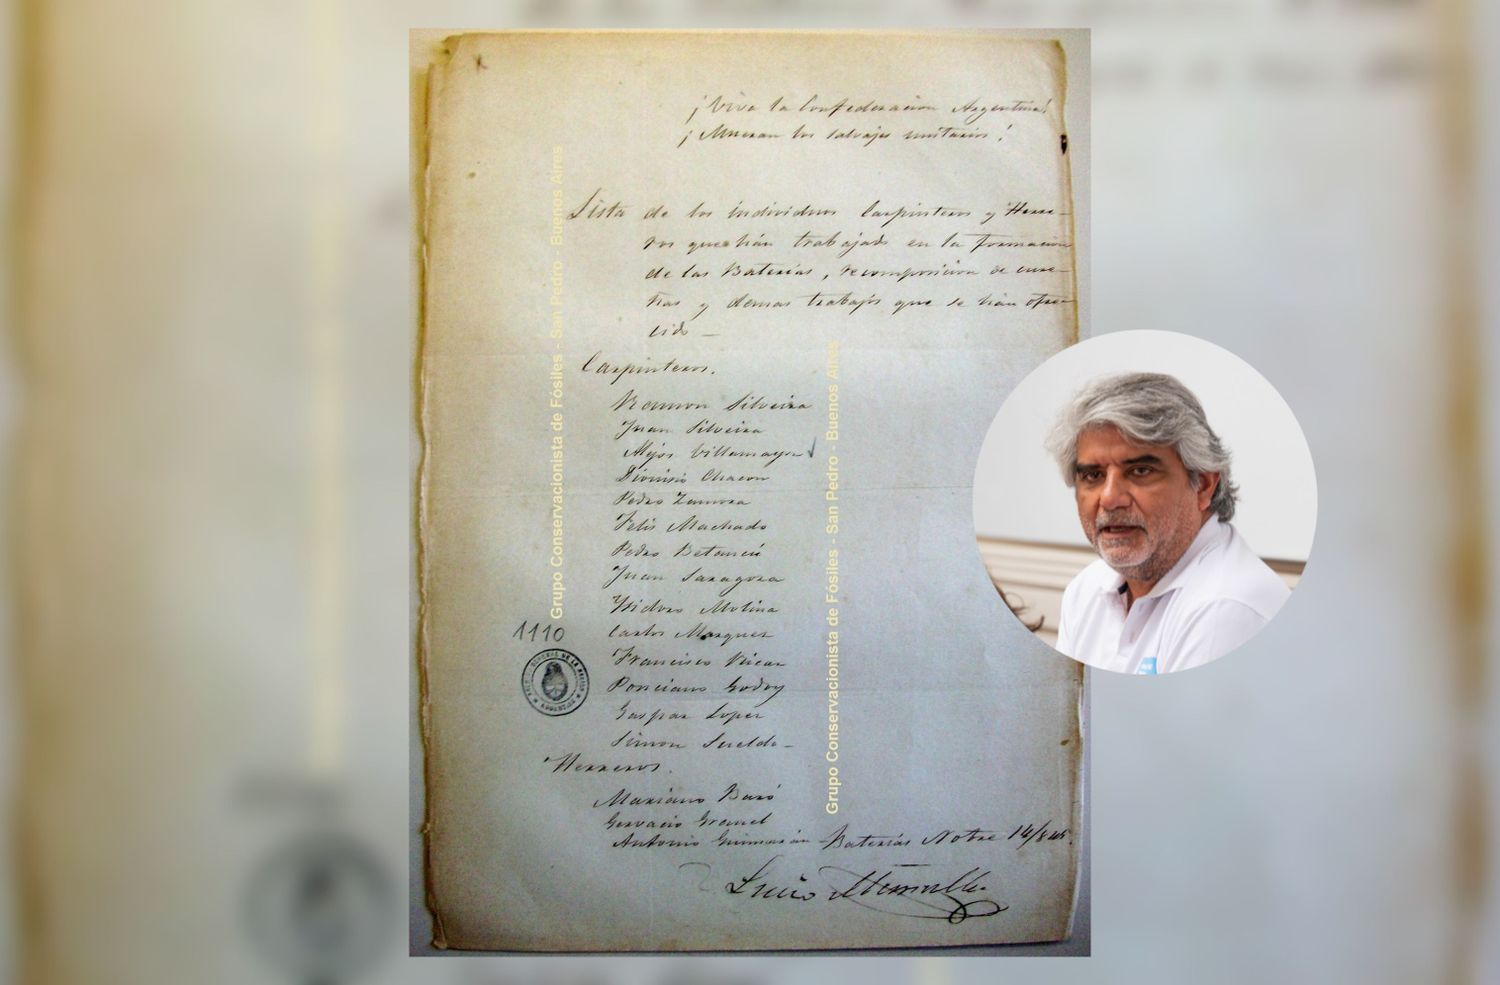 ¡Viva la Confederacion Argentina!
¡Mueran los salvajes unitarios!
Lista de los individuos Carpinteros y Herre-
ros que han trabajado en la formacion
de las Baterías, recomposicion de cure-
ñas y demas trabajos que se han ofre-
cido —
Carpinteros.
Ramon Silveira
Juan Silveira
Alejos Villamayor
Dionisio Chacon
Pedro Zamora
Felis Machado
Pedro Betancú
Juan Saragoza
Ysidoro Molina
Carlos Marquez
Francisco
Ponciano Godoy
Gaspar Lopez
Simon Sueldo —
Herreros.
Mariano Baró
Gervacio
Antonio Guimarán
Baterías Nobre 14/845.
Lucio Mansilla
1110
Grupo Conservacionista de Fósiles - San Pedro - Buenos Aires
Grupo Conservacionista de Fósiles - San Pedro - Buenos Aires